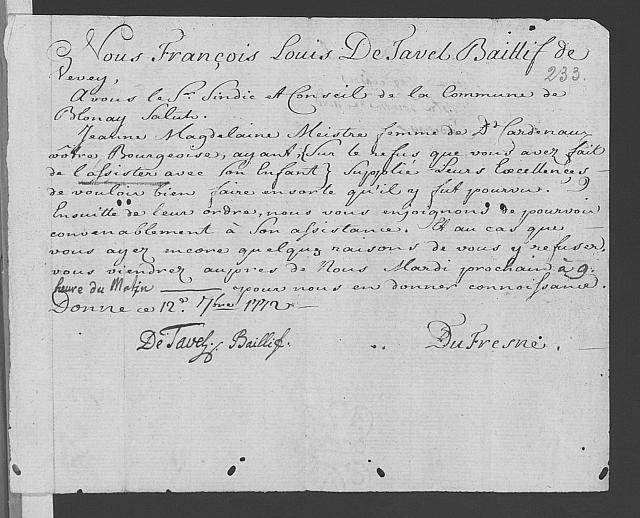 Nous François Louis De Tavel Baillif de
Vevey,
233.
A vous le Sr. Sindic et Conseil de la Commune de
Blonay Salut.
Jeanne Magdelaine Meistre femme de Dd. Cardenaux
vôtre Bourgeoise, ayant, Sur le refus que vous avez fait
de l'assister avec son Enfant, Supplié Leurs Excellences
de vouloir bien faire ensorte qu'il y fut pourvu.
Ensuitte de leur ordre, nous vous enjoignons de pourvoir
convenablement à Son assistance. Et au cas que
vous ayez encore quelques raisons de vous y refuser,
vous viendrez aupres de Nous Mardi prochain à 9.
heure du Matin pour nous en donner connoissance.
Donne ce 12e. 7bre 1772
De Tavel, Baillif. DuFresne.